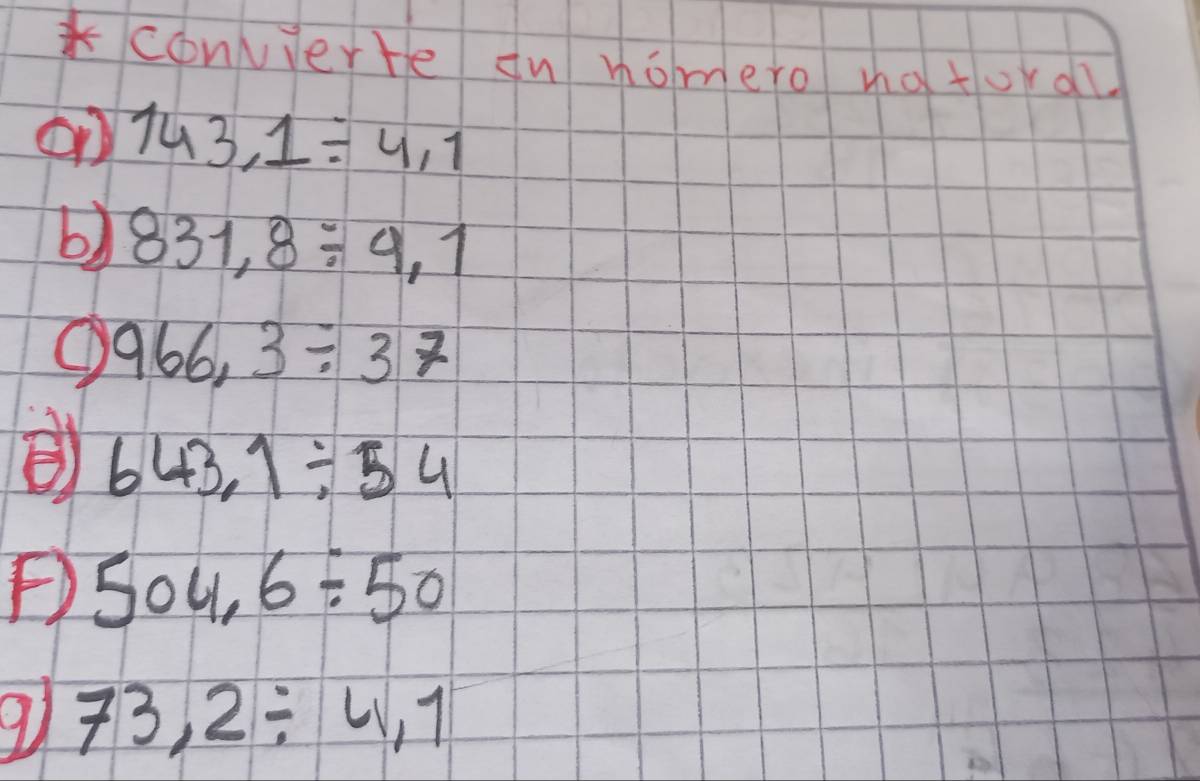 * convierte en número natural.
a) 143,1 ÷ 4,1
b) 831,8 ÷ 9,1
c) 966,3 ÷ 37
e) 643,1 ÷ 54
F) 504,6 ÷ 50
g) 73,2 ÷ 4,1